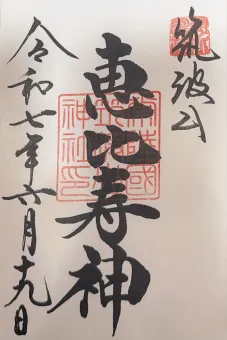 筑波山
恵比寿神
令和七年六月十九日
神社印